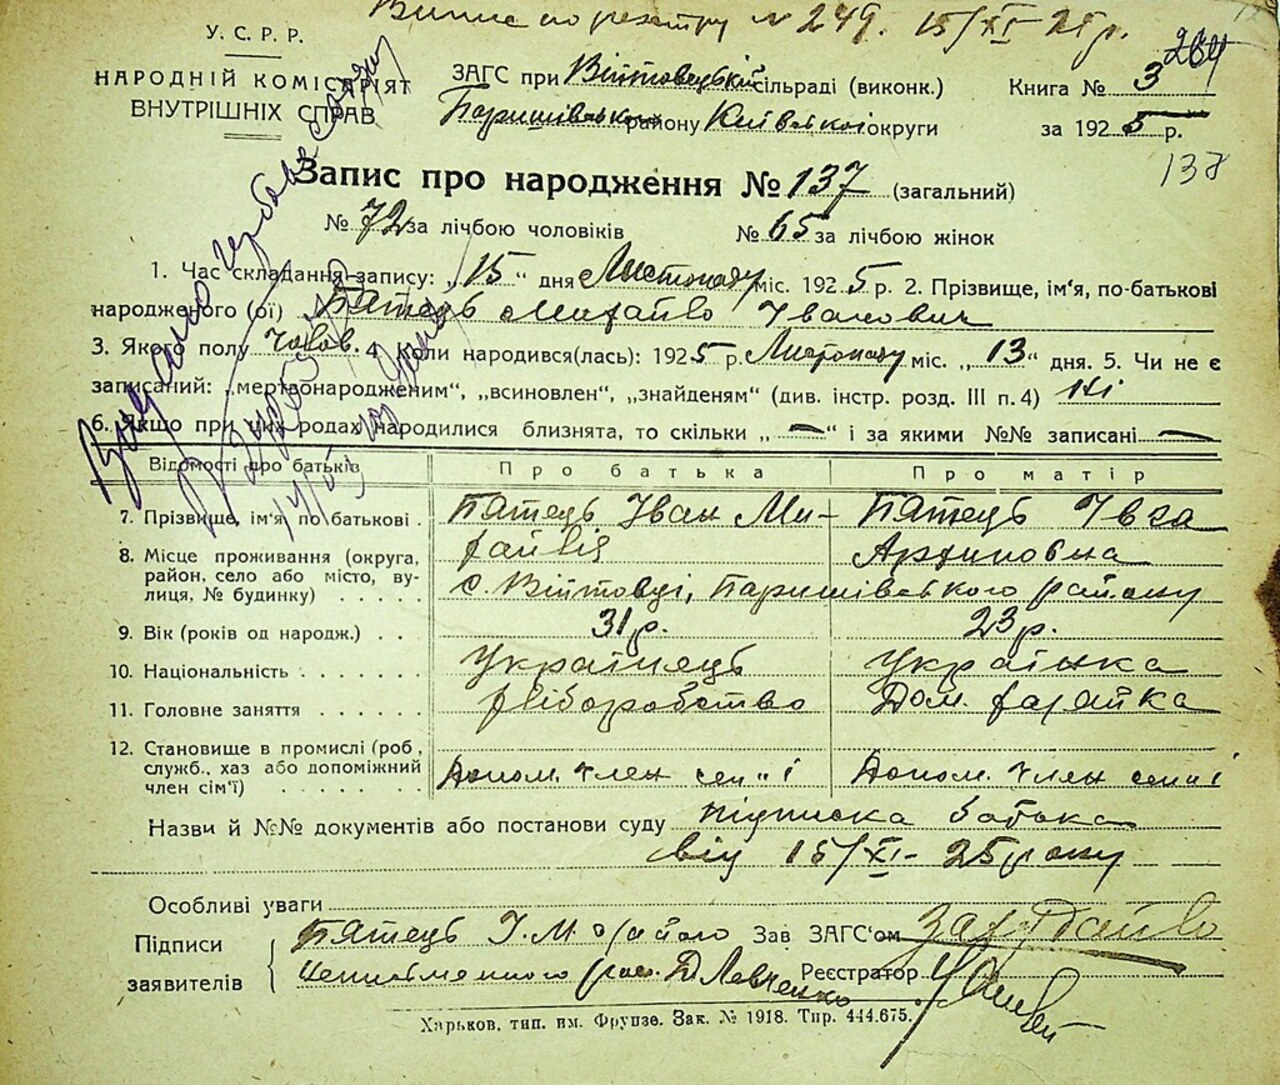 Випис по реєстру № 249. 15/XI-25 р.
264
У. С. Р. Р.
НАРОДНІЙ КОМІСТРІЯТ
ВНУТРІШНІХ СПРАВ
ЗАГС при Війтовецькій сільраді (виконк.)
Баришівського району Київської округи
Книга № 3
за 1925 р.
138
Запис про народження № 137 (загальний)
№ 72 за лічбою чоловіків № 65 за лічбою жінок
1. Час складання запису: „15“ дня Листопаду міс. 1925 р. 2. Прізвище, ім'я, по-батькові
народженого (ої) Пятець Михайло Іванович
3. Якого полу чолов. 4. Коли народився(лась): 1925 р. Листопаду міс. „13“ дня. 5. Чи не є
записаний: „мертвонародженим“, „всиновлен“, „знайденям“ (див. інстр. розд. III п. 4) Ні
6. Якщо при цих родах народилися близнята, то скільки „—“ і за якими №№ записані —
Відомості про батьків Про батька Про матір
7. Прізвище, ім'я по батькові . Пятець Іван Ми- Пятець Івга
хайлів Архиповна
8. Місце проживання (округа,
район, село або місто, ву-
лиця, № будинку) . . . . . с. Війтовці, Баришівського району
9. Вік (років од народж.) . . . 31 р. 23 р.
10. Національність . . . . . . . Українець Українка
11. Головне заняття . . . . . хліборобство Дом. хазяйка
12. Становище в промислі (роб,
служб., хаз або допоміжний
член сім'ї) . . . . . . . Допом. член сем'ї Допом. член сем'ї
Назви й №№ документів або постанови суду підписка батька
від 15/XI-25 року
Особливі уваги
Підписи
заявителів
Пятець І. М. а за його
неписьменного рос. Д Левченко
Зав ЗАГС'ом
Реєстратор
Харьков, тип. им. Фрунзе. Зак. № 1918. Тир. 444.675.